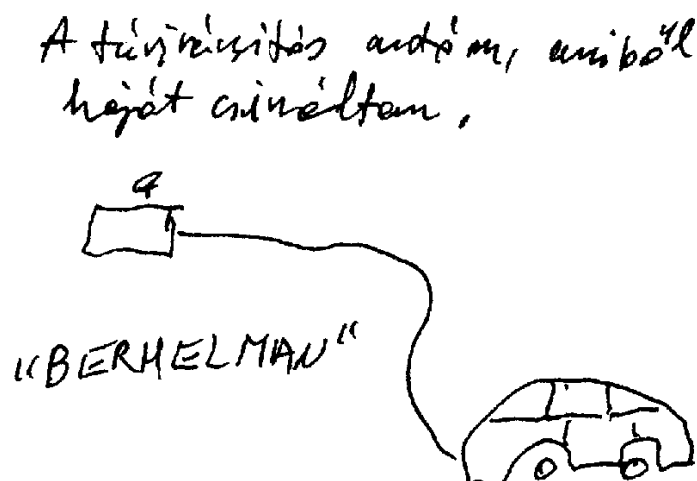 A távirányítós autóm, amiből
haját csináltam.
"BERHELMAN"